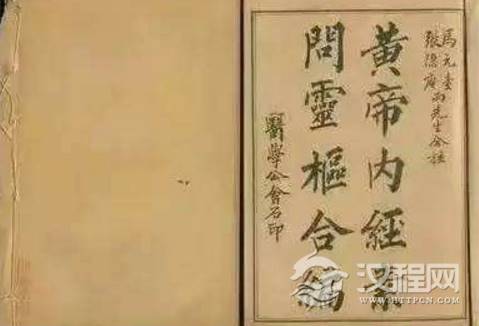 馬元臺
張隱庵兩先生合註
黃帝內經素
問靈樞合編
醫學公會石印
汉程网
WWW.HTTPCN.COM